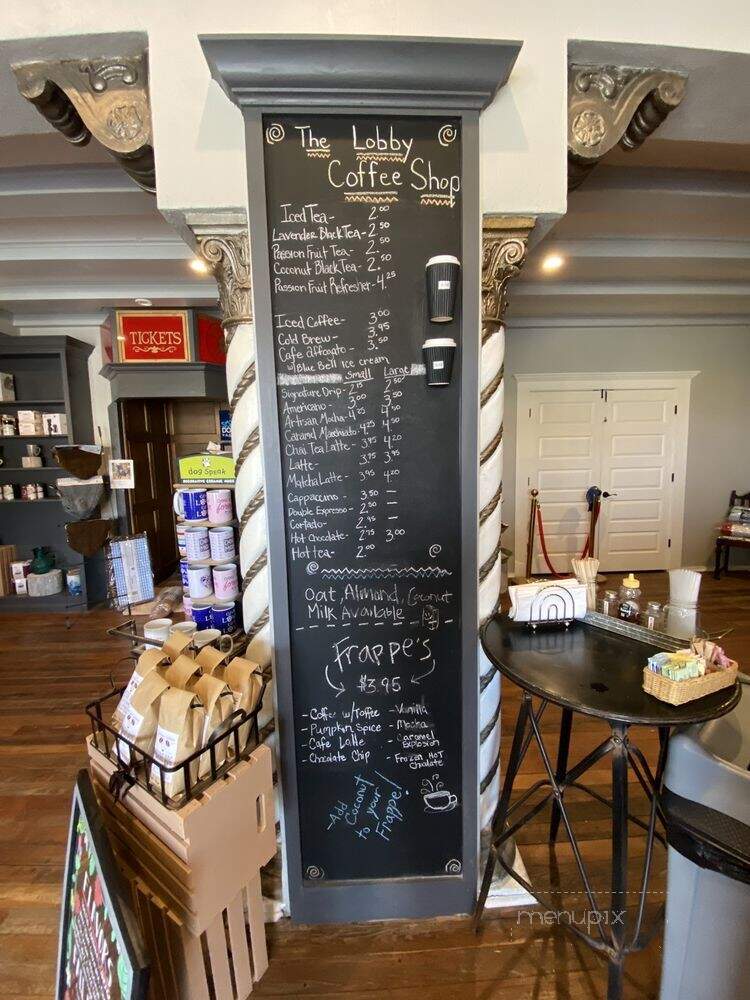 The Lobby
Coffee Shop
Iced Tea - 2.00
Lavender Black Tea - 2.50
Passion Fruit Tea - 2.50
Coconut Black Tea - 2.50
Passion Fruit Refresher - 4.25
Iced Coffee - 3.00
Cold Brew - 3.95
Cafe affogato - 3.50
w/ Blue Bell ice cream
Small Large
Signature Drip - 2.15 2.50
Americano - 3.00 3.50
Artisan Mocha - 4.25 4.50
Caramel Macchiato - 4.25 4.50
Chai Tea Latte - 3.95 4.20
Latte - 3.75 3.95
Matcha Latte - 3.95 4.20
Cappaccino - 3.50 -
Double Espresso - 2.50 -
Cortado - 2.95 -
Hot Chocolate - 2.75 3.00
Hot tea - 2.00
Oat, Almond, Coconut
Milk Available
Frappe's
$3.95
- Coffee w/Toffee
- Pumpkin Spice
- Cafe Latte
- Chocolate Chip
- Vanilla
- Mocha
- Caramel
Explosion
- Frozen Hot
Chocolate
- Add
Coconut
to your
Frappe!
TICKETS
dog speak
DECORATIVE CERAMIC MUGS
menupix